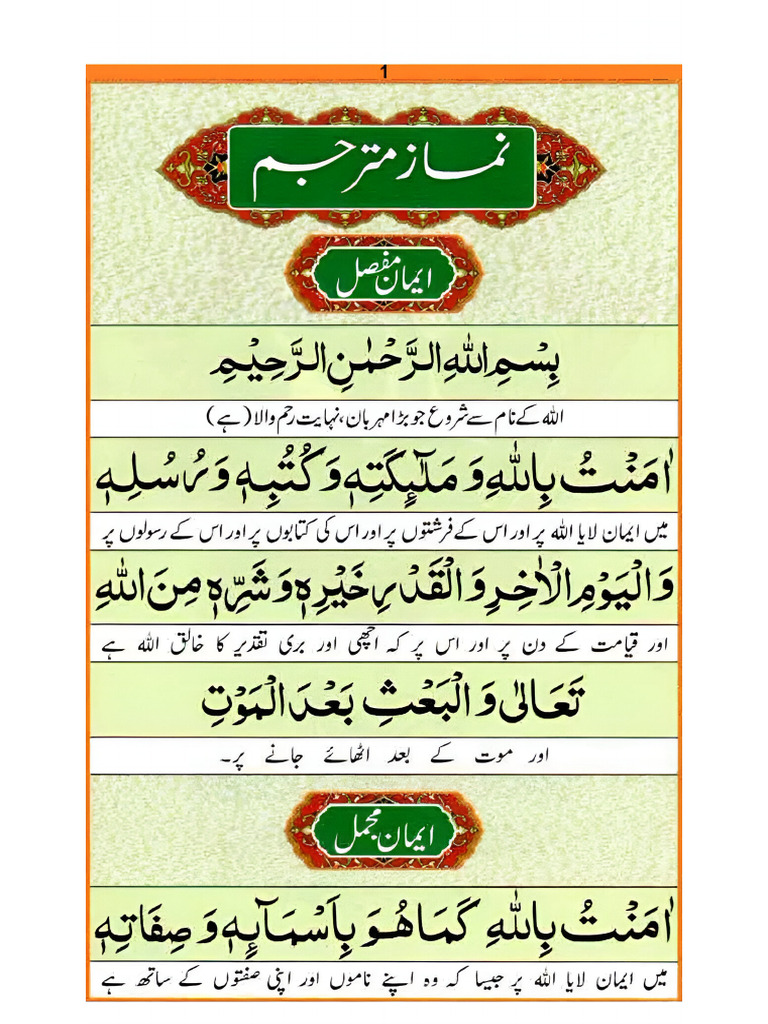 1
نماز مترجم
ایمان مفصل
بِسْمِ اللهِ الرَّحْمٰنِ الرَّحِيْمِ
اللہ کے نام سے شروع جو بڑا مہربان، نہایت رحم والا (ہے)
اٰمَنْتُ بِاللهِ وَ مَلٰٓئِكَتِهٖ وَ كُتُبِهٖ وَ رُسُلِهٖ
میں ایمان لایا اللہ پر اور اس کے فرشتوں پر اور اس کی کتابوں پر اور اس کے رسولوں پر
وَالْيَوْمِ الْاٰخِرِ وَ الْقَدْرِ خَيْرِهٖ وَ شَرِّهٖ مِنَ اللهِ
اور قیامت کے دن پر اور اس پر کہ اچھی اور بری تقدیر کا خالق اللہ ہے
تَعَالٰى وَ الْبَعْثِ بَعْدَ الْمَوْتِ
اور موت کے بعد اٹھائے جانے پر۔
ایمان مجمل
اٰمَنْتُ بِاللهِ كَمَا هُوَ بِاَسْمَآئِهٖ وَ صِفَاتِهٖ
میں ایمان لایا اللہ پر جیسا کہ وہ اپنے ناموں اور اپنی صفتوں کے ساتھ ہے